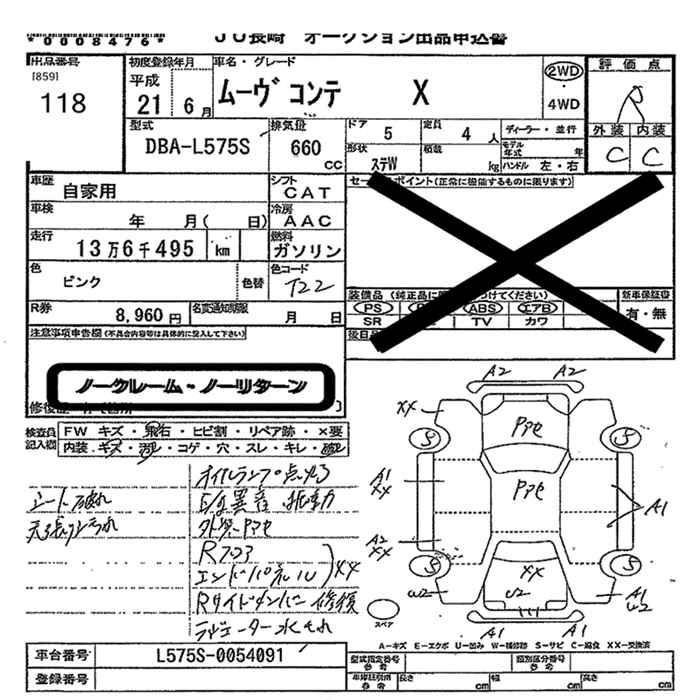 *0008476*
JU長崎 オークション出品申込書
出品番号
[859]
118
初度登録年月
平成
21 6月
車名・グレード
ムーヴ コンテ X
2WD
・
4WD
評価点
R
外装 内装
C C
型式
DBA-L575S
排気量
660
CC
ドア 5
定員 4人
ディーラー・並行
形状
ステW
積載
kg
モデル年式 年
ハンドル 左・右
車歴
自家用
シフト
CAT
車検
年 月( 日)
冷房
AAC
走行
13万6千495 km
燃料
ガソリン
色
ピンク
色替
色コード
T22
R券
8,960円
名変通知期限
月 日
注意事項申告欄(不具合内容等は具体的に記入して下さい)
ノークレーム・ノーリターン
ポイント(正常に機能するものに限ります)
装備品(純正品に
つけてください)
PS
ABS エアB
SR TV カワ
新車保証書
有・無
検査員
記入欄
FW キズ・飛石・ヒビ割・リペア跡・×要
内装・キズ・汚れ・コゲ・穴・スレ・キレ・破れ
シート破れ
オイルランプ点灯
E/g異音
外装 Pアセ
Rフロア
エンドパネル
XX
Rサイドメンバー 修復
ラジエーター水もれ
A2 A2
XX
Pアセ
S S
A1
XX
Pアセ
A1
A2
XX
S S
XX
W2
W2
A1
W2
A1 A1
スペア
A-キズ E-エクボ U-凹み W-補修跡 S-サビ C-腐食 XX-交換済
車台番号
L575S-0054091
登録番号
型式指定番号
参考
類別区分番号
参考
車検証別
参考
長さ cm
幅 cm
高さ cm